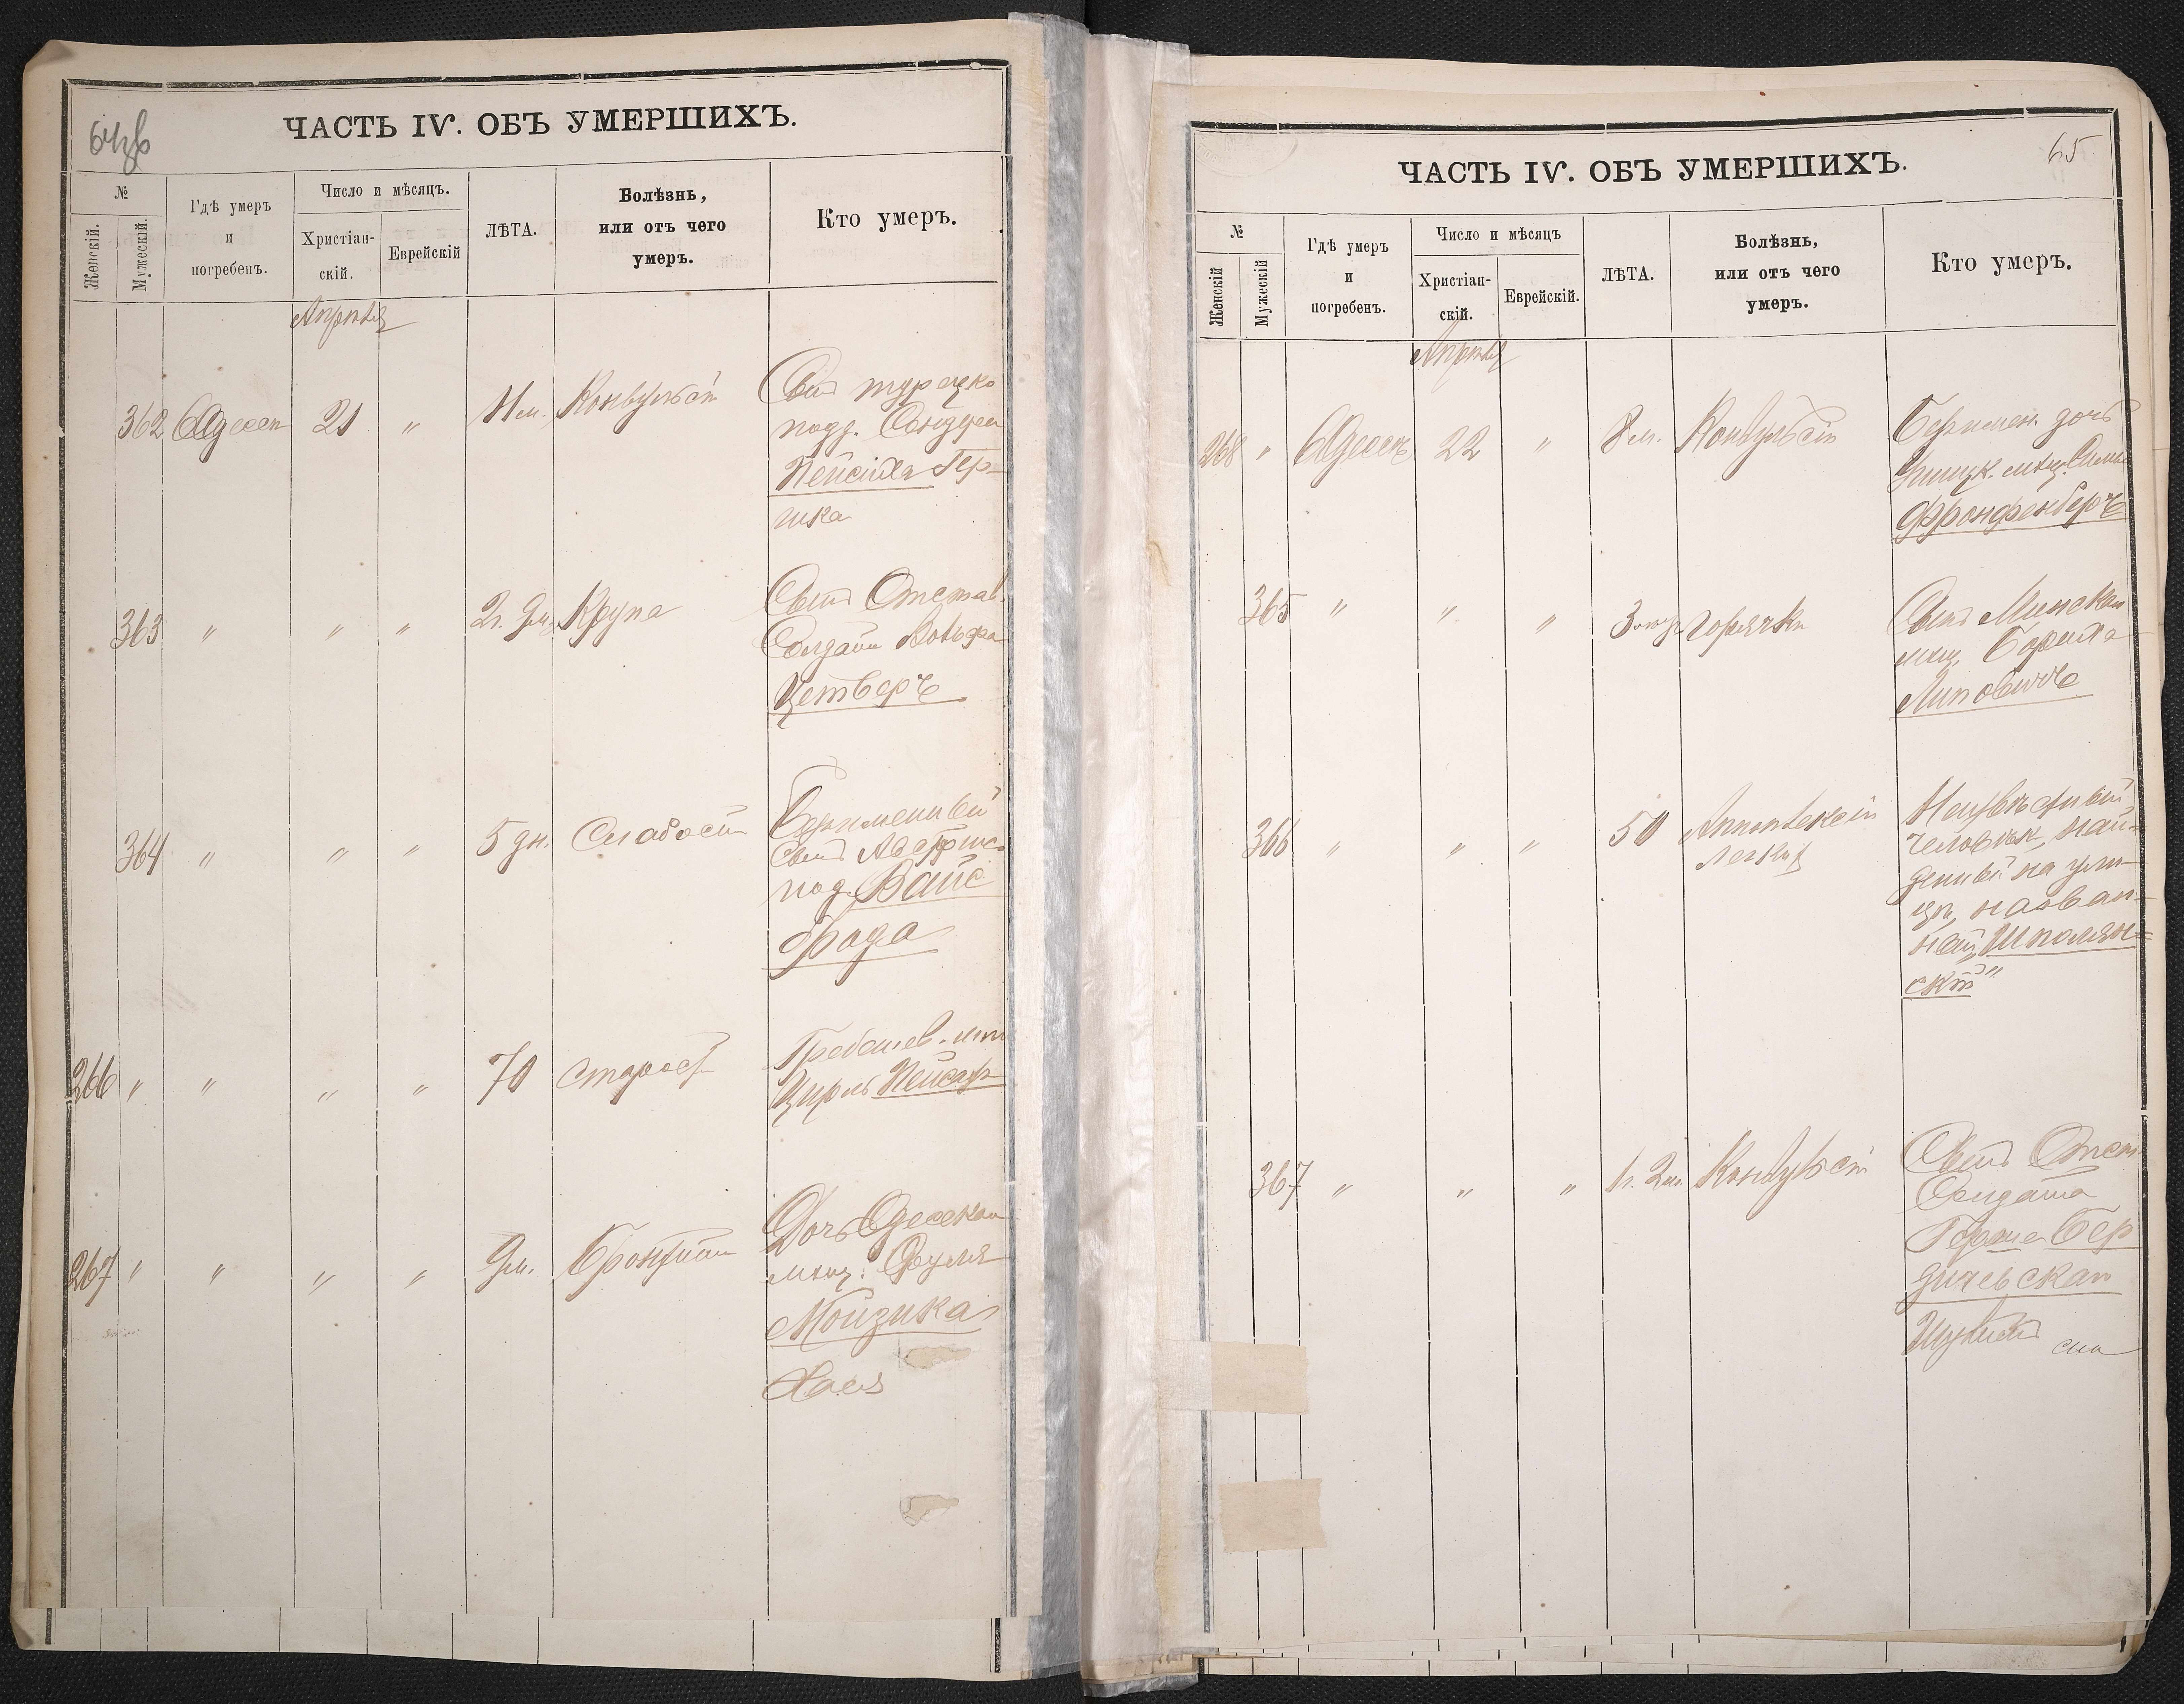 64зв
ЧАСТЬ IV. ОБЪ УМЕРШИХЪ.
№
Женскій.
Мужескій.
Гдѣ умеръ
и
погребенъ.
Число и мѣсяцъ.
Христіан-
скій.
Еврейскій
ЛѢТА.
Болѣзнь,
или отъ чего
умеръ.
Кто умеръ.
Апрѣля
362 Одесса 21 " 11 м. Конвульсіи
Сынъ турецко
подд.
Пейсиха Гер-
шка
363 " " " 2 г. 9 м. Крупа
Сынъ Отстав.
Солдата Вольфа
Цетверъ
364 " " " 5 дн. Слабости
Беримений
сынъ Австрійс.
под. Вайс
фрада
266 " " " " 70 старост
Цирль Пейсах
267 " " " " 9 м. Бронхит
Дочь Одесскаго
мѣщ. Фуля
Мойзика
Хаея
65.
ЧАСТЬ IV. ОБЪ УМЕРШИХЪ.
№
Женскій
Мужескій
Гдѣ умеръ
и
погребенъ.
Число и мѣсяцъ
Христіан-
скій.
Еврейскій.
ЛѢТА.
Болѣзнь,
или отъ чего
умеръ.
Кто умеръ.
Апрѣля
268 " Одесса 22 " 8 м. Конвульсіи
Беримен. дочь
мѣщ.
Фронфенберъ
365 " " " 3 Горячки
Сынъ Минскаго
мѣщ. Боруха
Липовичъ
366 " " " 50 Апоплексіи
легкихъ
Неизвѣстный
человѣкъ, най-
денный на ули-
цѣ, назван-
ный „Шполян-
скій"
367 " " " 1 г. 2 м. Конвульсіи
Сынъ Отст.
Солдата
Герша Бер
дичевскаго